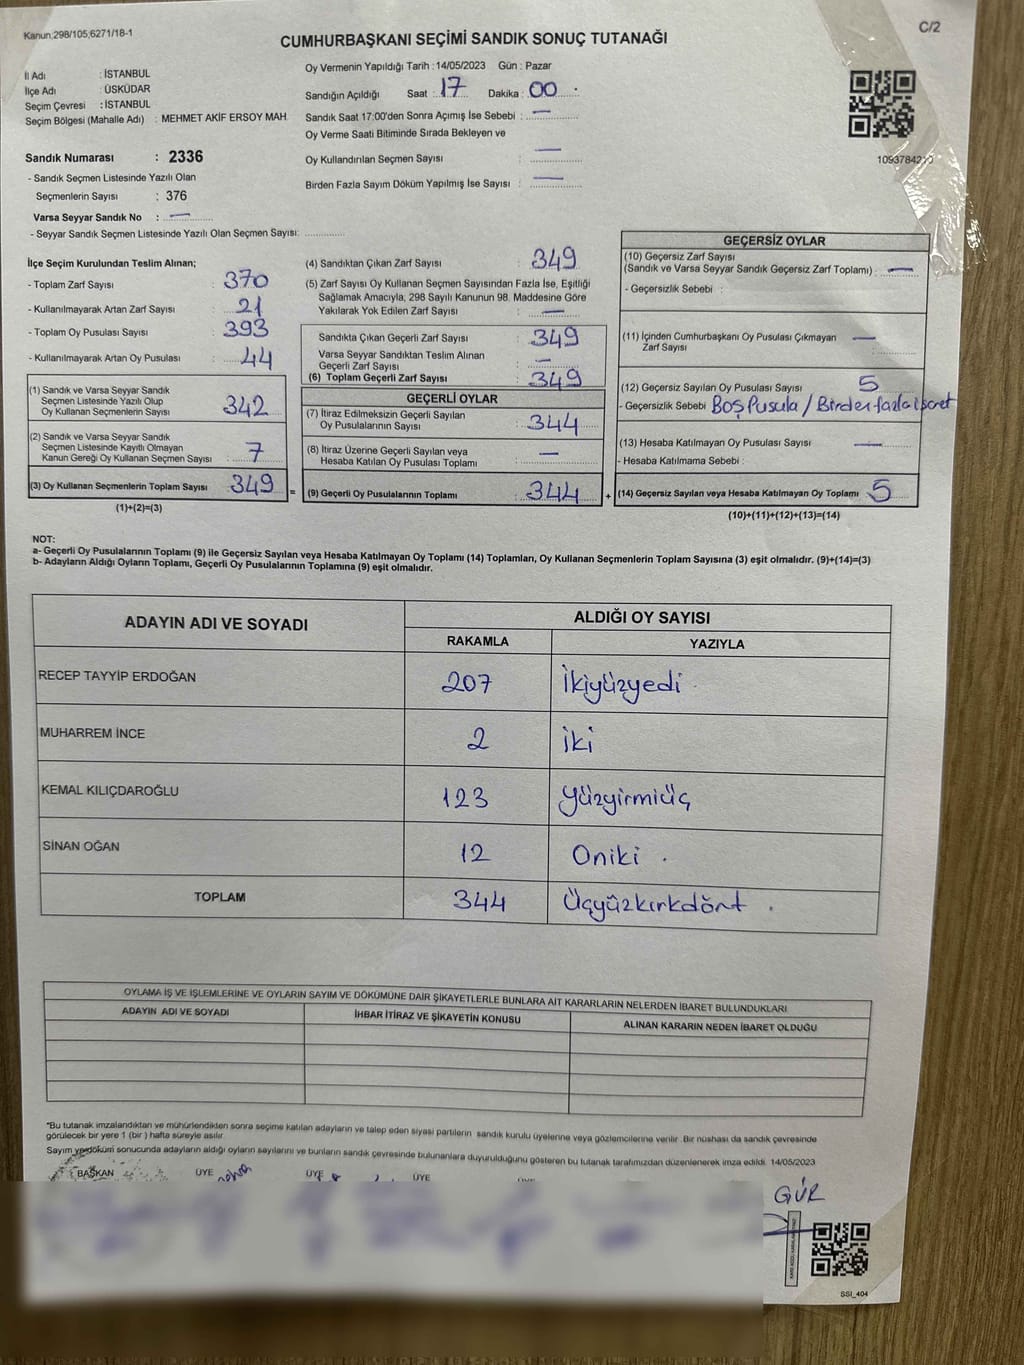 Kanun;298/105;6271/18-1
C/2
CUMHURBAŞKANI SEÇİMİ SANDIK SONUÇ TUTANAĞI
İl Adı : İSTANBUL
İlçe Adı : ÜSKÜDAR
Seçim Çevresi : İSTANBUL
Seçim Bölgesi (Mahalle Adı) : MEHMET AKİF ERSOY MAH
Sandık Numarası : 2336
- Sandık Seçmen Listesinde Yazılı Olan
Seçmenlerin Sayısı : 376
Varsa Seyyar Sandık No : —
- Seyyar Sandık Seçmen Listesinde Yazılı Olan Seçmen Sayısı: ............
Oy Vermenin Yapıldığı Tarih : 14/05/2023 Gün : Pazar
Sandığın Açıldığı Saat : 17 Dakika : 00
Sandık Saat 17:00'den Sonra Açımış İse Sebebi : —
Oy Verme Saati Bitiminde Sırada Bekleyen ve
Oy Kullandırılan Seçmen Sayısı : —
Birden Fazla Sayım Döküm Yapılmış İse Sayısı : —
İlçe Seçim Kurulundan Teslim Alınan;
- Toplam Zarf Sayısı : 370
- Kullanılmayarak Artan Zarf Sayısı : 21
- Toplam Oy Pusulası Sayısı : 393
- Kullanılmayarak Artan Oy Pusulası : 44
(1) Sandık ve Varsa Seyyar Sandık
Seçmen Listesinde Yazılı Olup
Oy Kullanan Seçmenlerin Sayısı : 342
(2) Sandık ve Varsa Seyyar Sandık
Seçmen Listesinde Kayıtlı Olmayan
Kanun Gereği Oy Kullanan Seçmen Sayısı : 7
(3) Oy Kullanan Seçmenlerin Toplam Sayısı 349 =
(1)+(2)=(3)
(4) Sandıktan Çıkan Zarf Sayısı : 349
(5) Zarf Sayısı Oy Kullanan Seçmen Sayısından Fazla İse, Eşitliği
Sağlamak Amacıyla, 298 Sayılı Kanunun 98. Maddesine Göre
Yakılarak Yok Edilen Zarf Sayısı : —
Sandıkta Çıkan Geçerli Zarf Sayısı : 349
Varsa Seyyar Sandıktan Teslim Alınan
Geçerli Zarf Sayısı : —
(6) Toplam Geçerli Zarf Sayısı : 349
GEÇERLİ OYLAR
(7) İtiraz Edilmeksizin Geçerli Sayılan
Oy Pusulalarının Sayısı : 344
(8) İtiraz Üzerine Geçerli Sayılan veya
Hesaba Katılan Oy Pusulası Toplamı : —
(9) Geçerli Oy Pusulalarının Toplamı : 344 +
1093784210
GEÇERSİZ OYLAR
(10) Geçersiz Zarf Sayısı
(Sandık ve Varsa Seyyar Sandık Geçersiz Zarf Toplamı) : —
- Geçersizlik Sebebi :
(11) İçinden Cumhurbaşkanı Oy Pusulası Çıkmayan
Zarf Sayısı : —
(12) Geçersiz Sayılan Oy Pusulası Sayısı : 5
- Geçersizlik Sebebi Boş Pusula / Birden fazla işaret
(13) Hesaba Katılmayan Oy Pusulası Sayısı : —
- Hesaba Katılmama Sebebi :
(14) Geçersiz Sayılan veya Hesaba Katılmayan Oy Toplamı 5
(10)+(11)+(12)+(13)=(14)
NOT:
a- Geçerli Oy Pusulalarının Toplamı (9) ile Geçersiz Sayılan veya Hesaba Katılmayan Oy Toplamı (14) Toplamları, Oy Kullanan Seçmenlerin Toplam Sayısına (3) eşit olmalıdır. (9)+(14)=(3)
b- Adayların Aldığı Oyların Toplamı, Geçerli Oy Pusulalarının Toplamına (9) eşit olmalıdır.
ADAYIN ADI VE SOYADI ALDIĞI OY SAYISI
RAKAMLA YAZIYLA
RECEP TAYYİP ERDOĞAN 207 İkiyüzyedi
MUHARREM İNCE 2 İki
KEMAL KILIÇDAROĞLU 123 Yüzyirmiüç
SİNAN OĞAN 12 Oniki .
TOPLAM 344 Üçyüzkırkdört .
OYLAMA İŞ VE İŞLEMLERİNE VE OYLARIN SAYIM VE DÖKÜMÜNE DAİR ŞİKAYETLERLE BUNLARA AİT KARARLARIN NELERDEN İBARET BULUNDUKLARI
ADAYIN ADI VE SOYADI İHBAR İTİRAZ VE ŞİKAYETİN KONUSU ALINAN KARARIN NEDEN İBARET OLDUĞU
*Bu tutanak imzalandıktan ve mühürlendikten sonra seçime katılan adayların ve talep eden siyasi partilerin sandık kurulu üyelerine veya gözlemcilerine verilir. Bir nüshası da sandık çevresinde
görülecek bir yere 1 (bir ) hafta süreyle asılır.
Sayım ve döküm sonucunda adayların aldığı oyların sayılarını ve bunların sandık çevresinde bulunanlara duyurulduğunu gösteren bu tutanak tarafımızdan düzenlenerek imza edildi. 14/05/2023
BAŞKAN ÜYE ÜYE ÜYE
GÜR
SSI_404